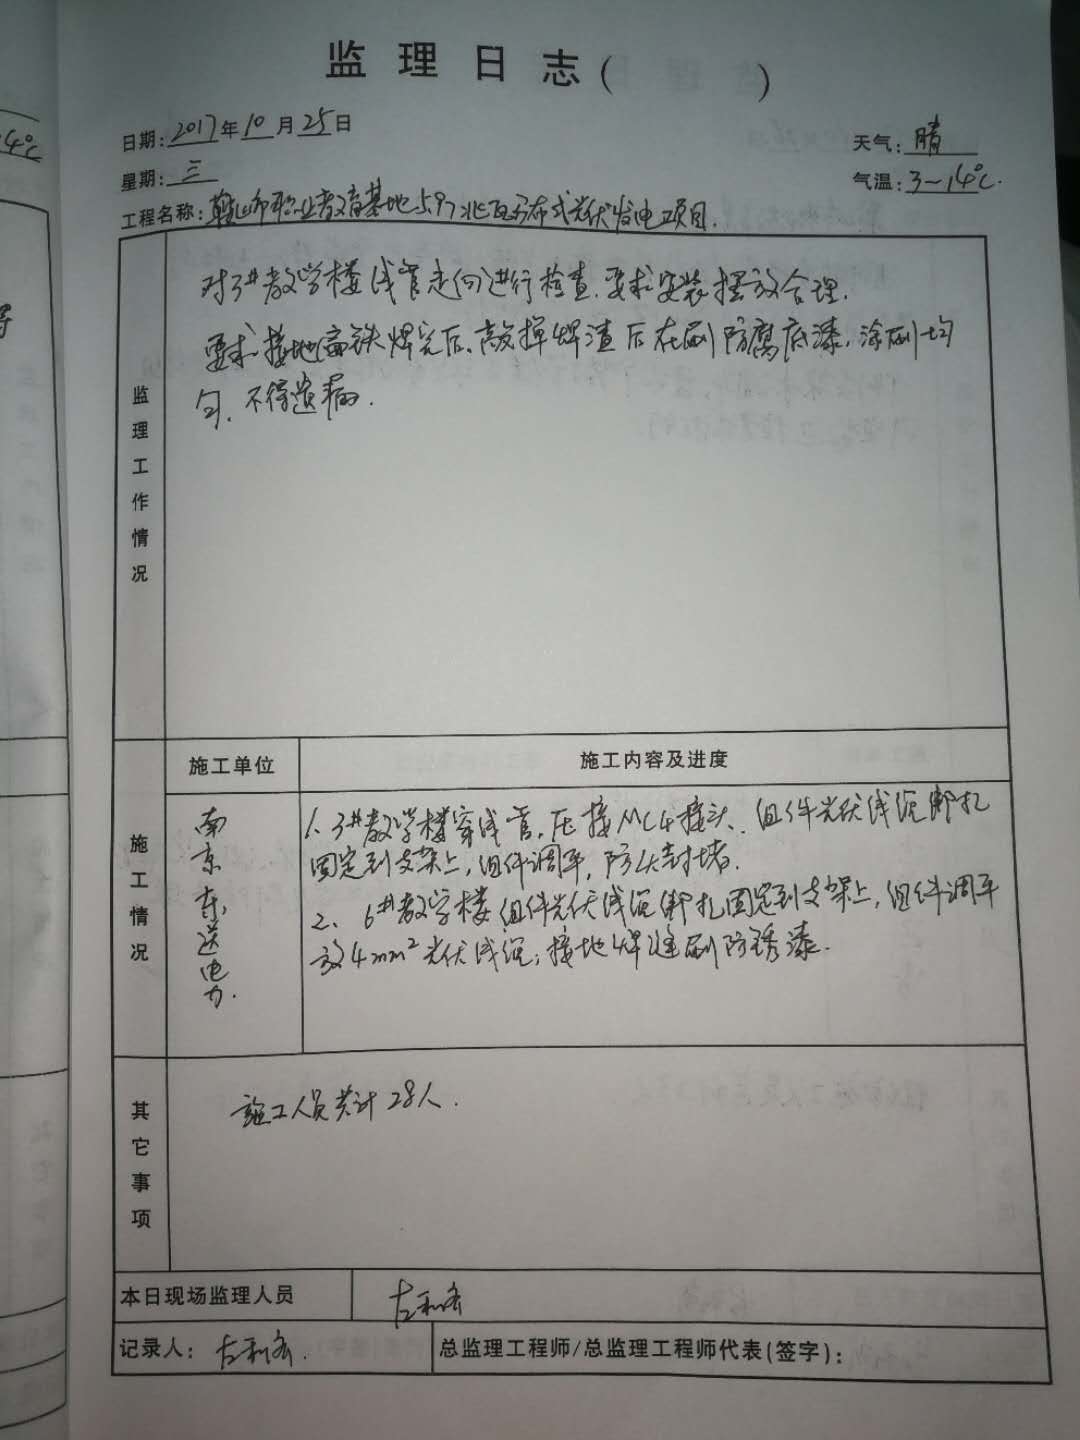 监理日志( )
日期:2017年10月25日
天气:晴
星期:三
气温:3-14℃.
工程名称:鞍山市职业教育基地5.97兆瓦分布式光伏发电项目.
监理工作情况
对3#教学楼线管走向进行检查.要求安装摆放合理.
要求接地扁铁焊完后、敲掉焊渣后在刷防腐底漆,涂刷均
匀.不得遗漏.
施工单位
施工内容及进度
施工情况
南京东送电力.
1、3#教学楼穿线管,压接MC4接头、组件光伏线缆绑扎
固定到支架上,组件调平,防火封堵.
2、6#教学楼组件光伏线缆绑扎固定到支架上,组件调平
放4mm²光伏线缆;接地焊缝刷防锈漆.
其它事项
施工人员共计28人.
本日现场监理人员
记录人:
总监理工程师/总监理工程师代表(签字):